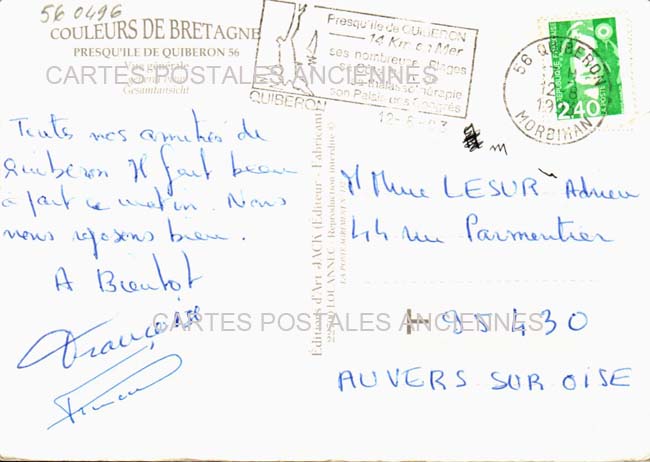 56 0496
COULEURS DE BRETAGNE
PRESQU'ILE DE QUIBERON 56
Vue générale
Gesamtansicht
CARTES POSTALES ANCIENNES
Presqu'île de QUIBERON
14 Km en Mer
ses nombreuses plages
thalassothérapie
son Palais des Congrès
QUIBERON
12-8-93
56 QUIBERON
12
19
MORBIHAN
REPUBLIQUE FRANÇAISE
LA POSTE
2,40
Toutes nos amitiés de
Quiberon Il fait beau
à part ce matin. Nous
nous reposons bien.
A Bientôt
Françoise
Editions d'Art JACK (Editeur - Fabricant)
LOUANNEC - Reproduction interdite
M Mme LESUR Adrien
44 rue Parmentier
95430
AUVERS SUR OISE
CARTES POSTALES ANCIENNES